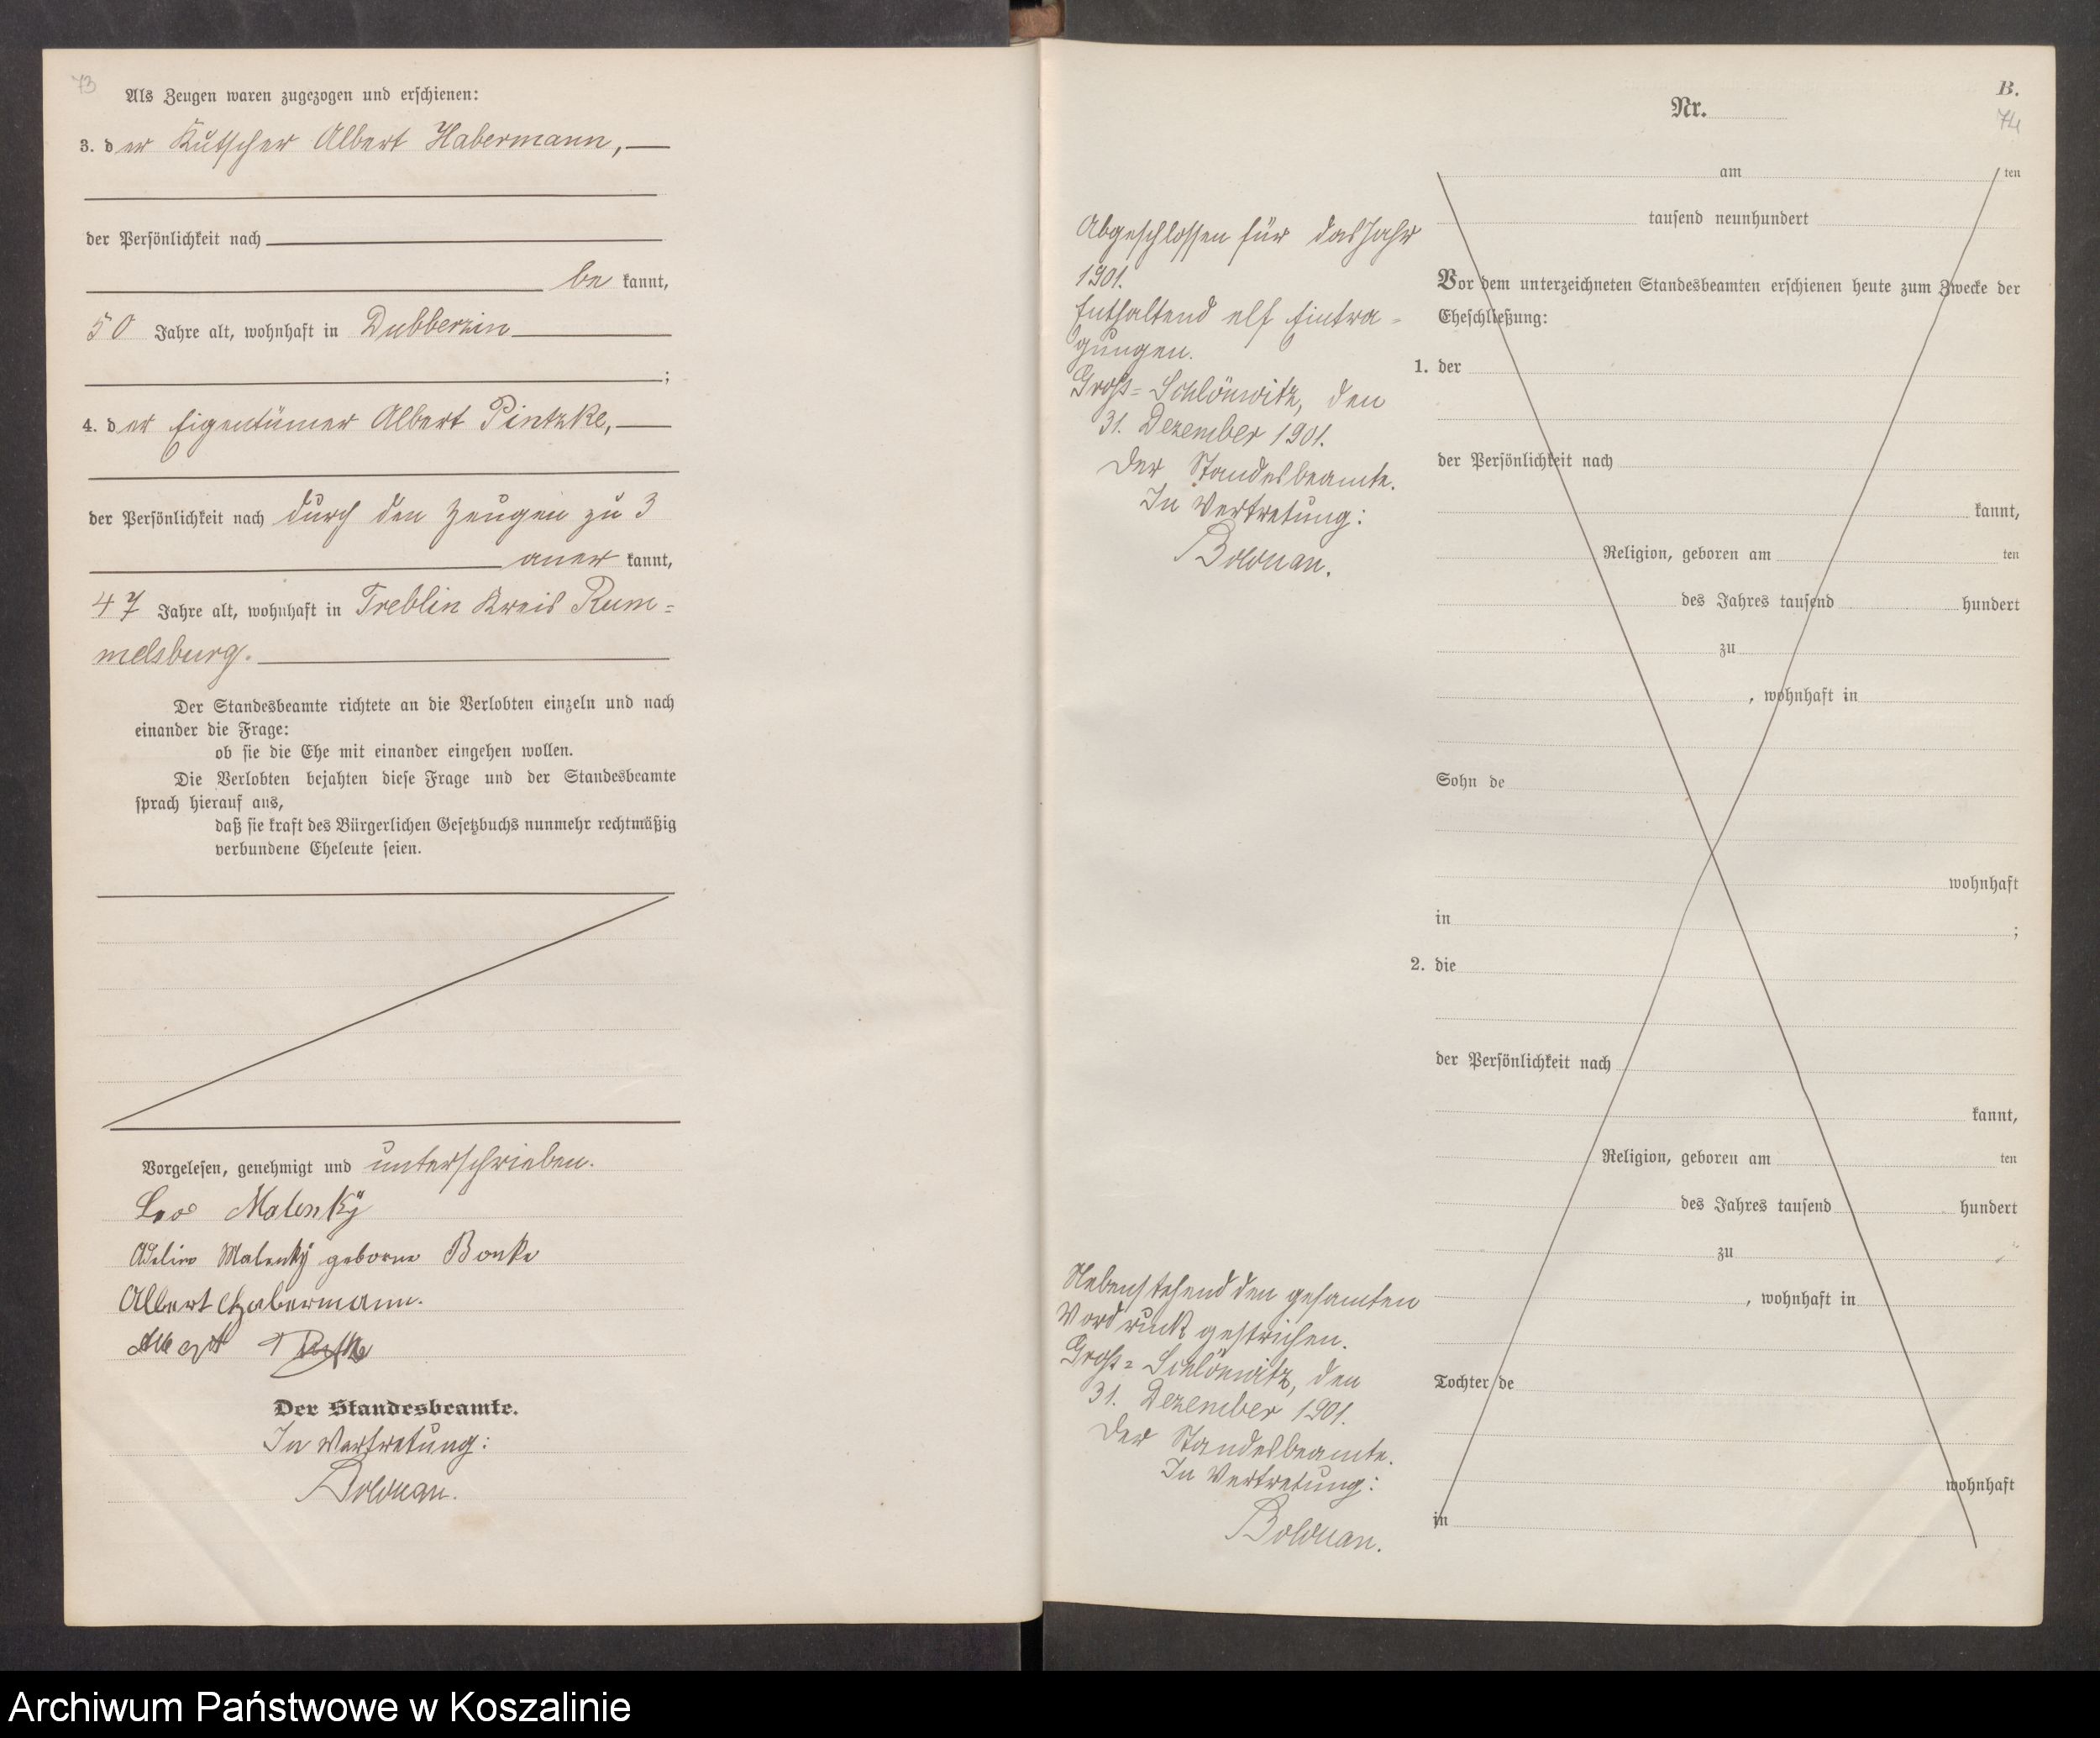 73
Als Zeugen waren zugezogen und erschienen:
3. der Kutscher Albert Habermann,
der Persönlichkeit nach
be kannt,
50 Jahre alt, wohnhaft in Dubberzin
;
4. der Eigentümer Albert Pintzke,
der Persönlichkeit nach durch den Zeugen zu 3
aner kannt,
47 Jahre alt, wohnhaft in Treblin Kreis Rum=
melsburg.
Der Standesbeamte richtete an die Verlobten einzeln und nach
einander die Frage:
ob sie die Ehe mit einander eingehen wollen.
Die Verlobten bejahten diese Frage und der Standesbeamte
sprach hierauf aus,
daß sie kraft des Bürgerlichen Gesetzbuchs nunmehr rechtmäßig
verbundene Eheleute seien.
Vorgelesen, genehmigt und unterschrieben.
Leo Malenky
Malenky geborne Bonke
Albert Habermann.
Der Standesbeamte.
In Vertretung:
B.
Nr.
74
am ten
tausend neunhundert
Abgeschlossen für das Jahr
1901.
Enthaltend elf Eintra=
gungen.
Groß=Schlönwitz, den
31. Dezember 1901.
Der Standesbeamte.
In Vertretung:
Vor dem unterzeichneten Standesbeamten erschienen heute zum Zwecke der
Eheschließung:
1. der
der Persönlichkeit nach
kannt,
Religion, geboren am ten
des Jahres tausend hundert
zu
, wohnhaft in
Sohn de
wohnhaft
in ;
2. die
der Persönlichkeit nach
kannt,
Religion, geboren am ten
des Jahres tausend hundert
zu
, wohnhaft in
Tochter de
wohnhaft
in
Nebenstehend den gesamten
Vordruck gestrichen.
Groß=Schlönwitz, den
31. Dezember 1901.
Der Standesbeamte.
In Vertretung:
Archiwum Państwowe w Koszalinie